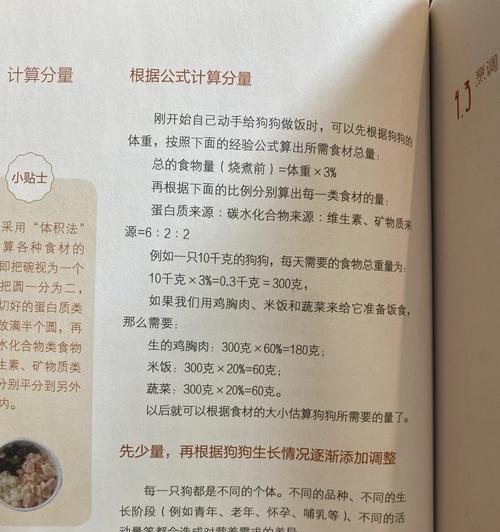 计算分量
小贴士
采用“体积法”
算各种食材的
即把碗视为一个
把圆一分为二，
切好的蛋白质类
放满半个圆，再
水化合物类食物
生素、矿物质类
分别平分到另外
内。
根据公式计算分量
刚开始自己动手给狗狗做饭时，可以先根据狗狗的
体重，按照下面的经验公式算出所需食材总量：
总的食物量（烧煮前）=体重×3%
再根据下面的比例分别算出每一类食材的量：
蛋白质来源：碳水化合物来源：维生素、矿物质来
源=6：2：2
例如一只10千克的狗狗，每天需要的食物总重量为：
10千克×3%=0.3千克=300克，
如果我们用鸡胸肉、米饭和蔬菜来给它准备饭食，
那么需要：
生的鸡胸肉：300克×60%=180克；
米饭：300克×20%=60克；
蔬菜：300克×20%=60克。
以后就可以根据食材的大小估算狗狗所需要的量了。
先少量，再根据狗狗生长情况逐渐添加调整
每一只狗都是不同的个体。不同的品种、不同的生
长阶段（例如青年、老年、怀孕、哺乳等）、不同的活
动量等都会造成对营养需求的差异
1.3 烹调